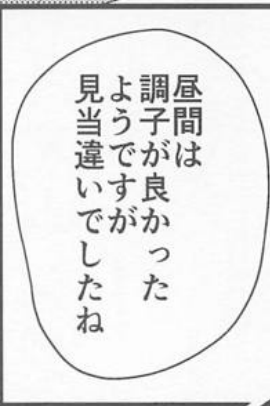 昼間は
調子が良かった
ようですが
見当違いでしたね